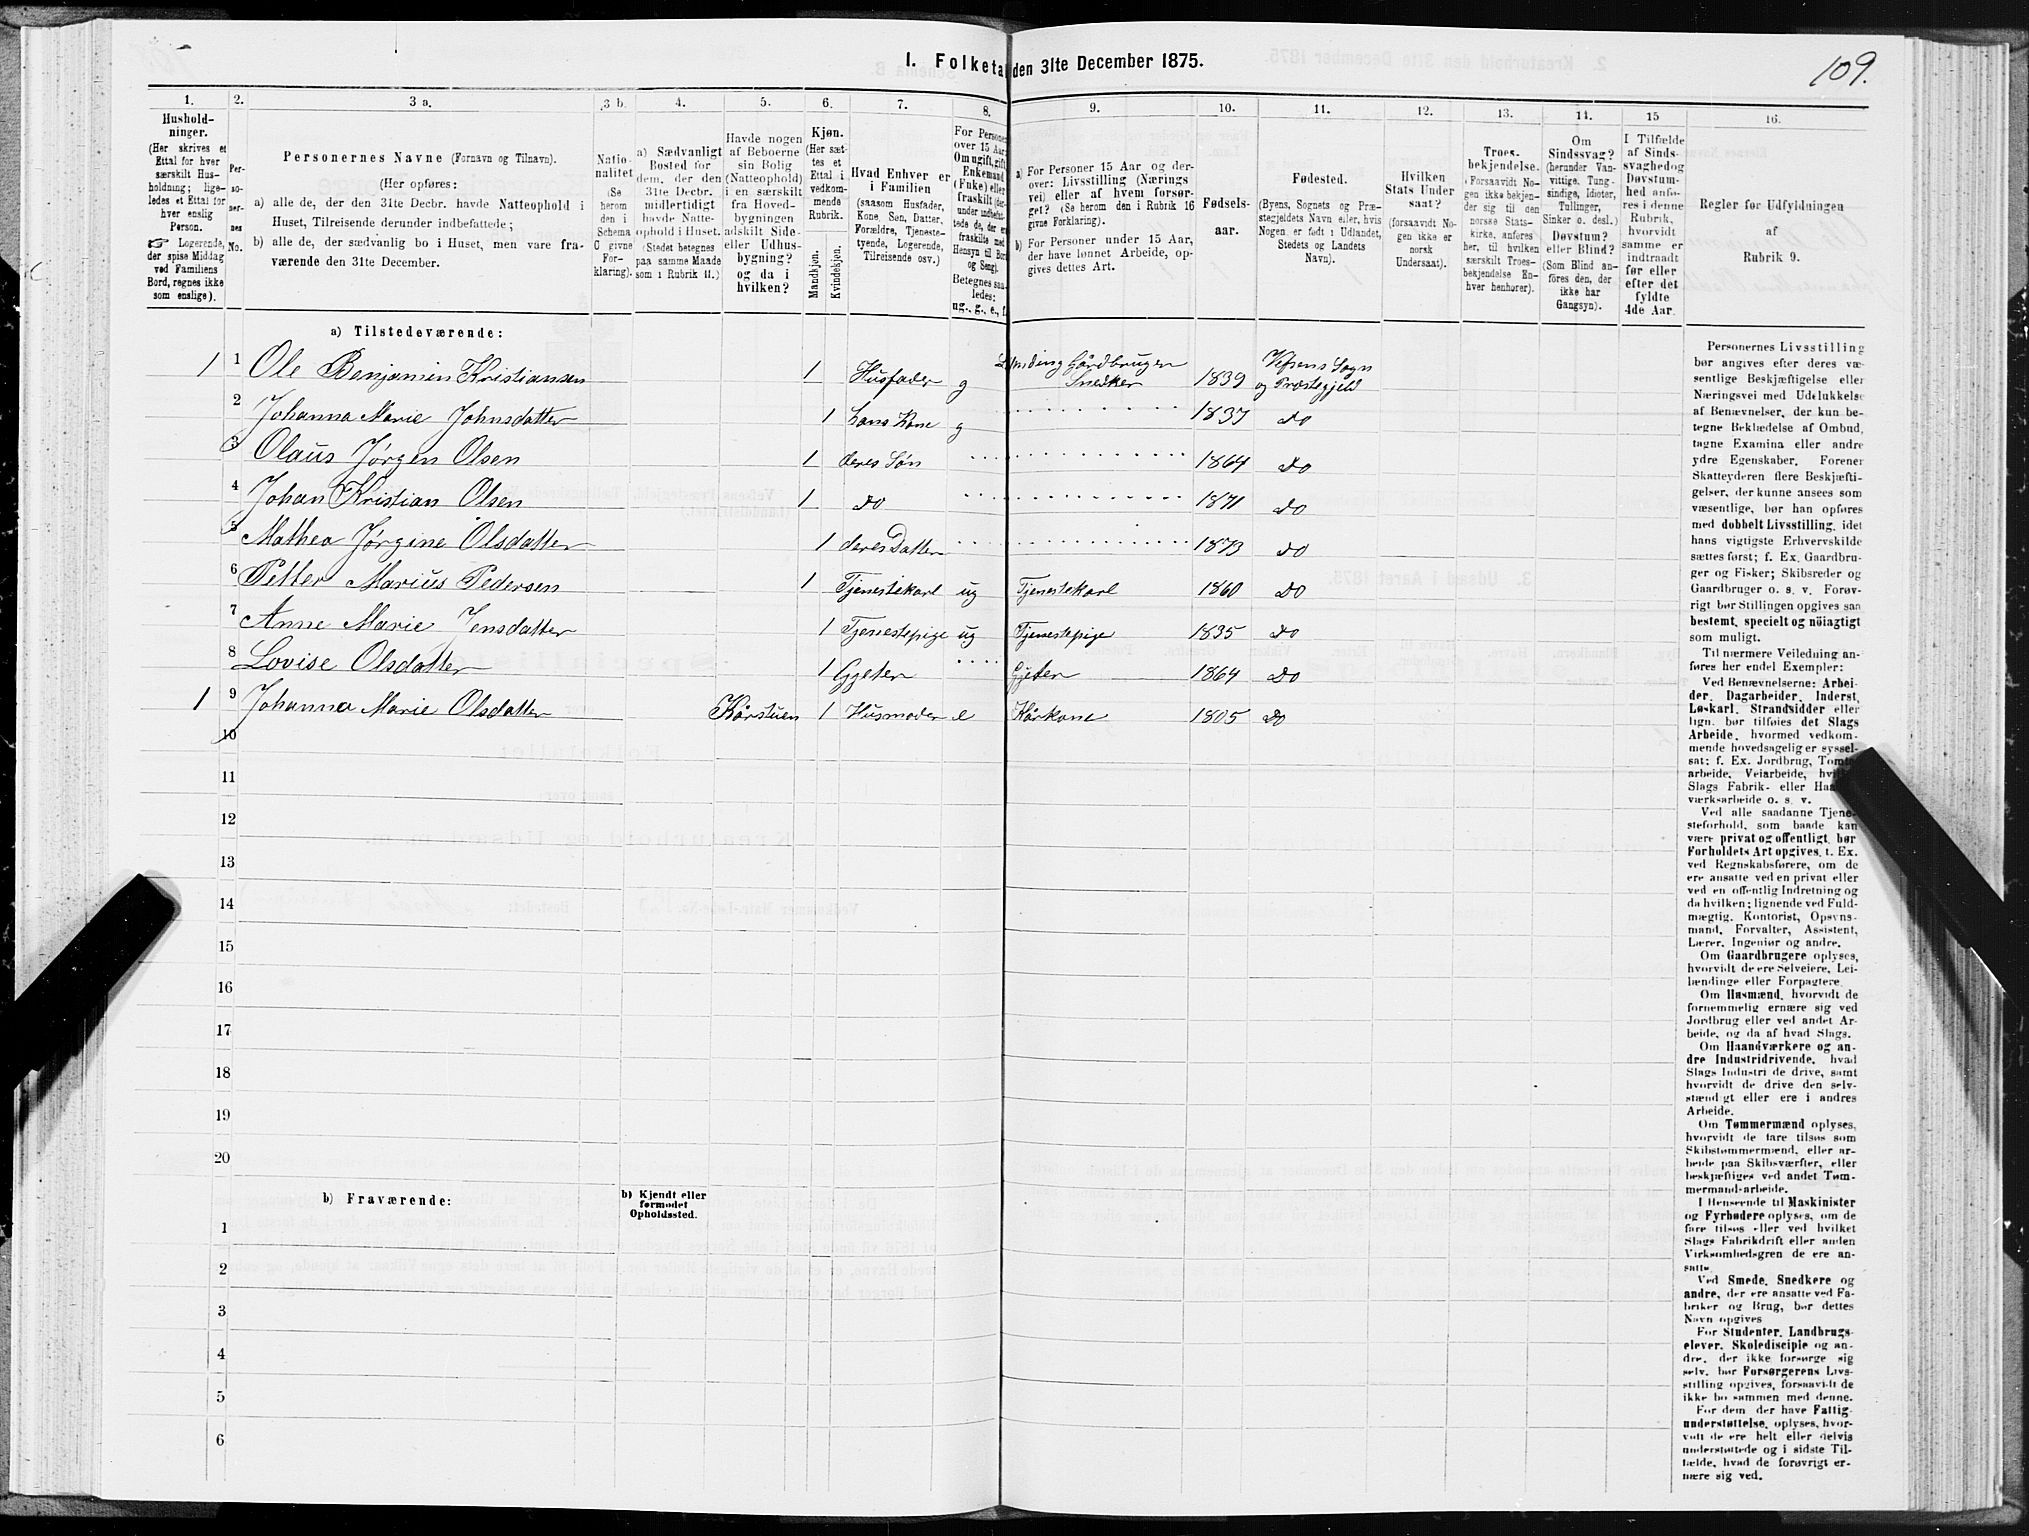 109.
I. Folketa den 31te December 1875.
1. 2. 3 a. 3 b. 4. 5. 6. 7. 8. 9. 10. 11. 12. 13. 14. 15 16.
Hushold-
ninger.
(Her skrives et
Ettal for hver
særskilt Hus-
holdning; lige-
ledes et Ettal for
hver enslig
Person.
☞ Logerende,
der spise Middag
ved Familiens
Bord, regnes ikke
som enslige).
Per-
so-
ner-
nes
No.
Personernes Navne (Fornavn og Tilnavn).
(Her opføres:
a) alle de, der den 31te Decbr. havde Natteophold i
Huset, Tilreisende derunder indbefattede;
b) alle de, der sædvanlig bo i Huset, men vare fra-
værende den 31te December.
Natio-
nalitet
(Se
herom
den i
Schema
C givne
For-
klaring).
a) Sædvanligt
Bosted for
dem, der den
31te Decbr.
midlertidigt
havde Natte-
ophold i Huset.
(Stedet betegnes
paa samme Maade
som i Rubrik 11.)
Havde nogen
af Beboerne
sin Bolig
(Natteophold)
i en særskilt
fra Hoved-
bygningen
adskilt Side-
eller Udhus-
bygning?
og da i
hvilken?
Kjøn.
(Her sæt-
tes et
Ettal i
vedkom-
mende
Rubrik.
Mandkjøn.
Kvindekjøn.
Hvad Enhver er
i Familien
(saasom Husfader,
Kone, Søn, Datter,
Forældre, Tjeneste-
tyende, Logerende,
Tilreisende osv.)
For Personer
over 15 Aar:
Om ugift, gift
Enkemand
(Enke) eller
fraskilt
Betegnes saa-
ledes:
ug., g., e., f.
a) For Personer 15 Aar og der-
over: Livsstilling (Nærings
vei) eller af hvem forsør-
get? (Se herom den i Rubrik 16
givne Forklaring).
b) For Personer under 15 Aar,
der have lønnet Arbeide, op-
gives dettes Art.
Fødsels-
aar.
Fødested.
(Byens, Sognets og Præ-
stegjeldets Navn eller, hvis
Nogen er født i Udlandet,
Stedets og Landets
Navn).
Hvilken
Stats Under
saat?
(forsaavidt No-
gen ikke er
norsk
Undersaat).
Troes-
bekjendelse.
(Forsaavidt No-
gen ikke bekjen-
der sig til den
norske Stats-
kirke, anføres
her, til hvilken
særskilt Troes-
bekjendelse En-
hver henhører).
Om
Sindssvag?
(herunder Van-
vittige, Tung-
sindige, Idioter,
Tullinger,
Sinker o. desl.)
Døvstum?
eller Blind?
(Som Blind an-
føres den, der
ikke har
Gangsyn).
I Tilfælde
af Sinds-
svaghedog
Døvstum-
hed anfø-
res i denne
Rubrik,
hvorvidt
samme er
indtraadt
før eller
efter det
fyldte
4de Aar.
Regler før Udfyldningen
af
Rubrik 9.
a) Tilstedeværende:
1 1 Ole Benjamin Kristiansen 1 Husfader g Gårdbruger Snedker 1839 Vefsens Sogn og Præstegjeld
2 Johanna Marie Johnsdatter 1 hans Kone g 1837 Do
3 Olaus Jørgen Olsen 1 deres Søn 1864 Do
4 Johan Kristian Olsen 1 Do 1871 Do
5 Mathea Jørgine Olsdatter 1 deres Datter 1873 Do
6 Petter Marius Pedersen 1 Tjenestekarl ug Tjenestekarl 1860 Do
7 Anne Marie Jensdatter 1 Tjenestepige ug Tjenestepige 1835 Do
8 Lovise Olsdatter 1 Gjeter Gjeter 1864 Do
1 9 Johanna Marie Olsdatter Kårstuen 1 Husmoder e Kårkone 1805 Do
10
11
12
13
14
15
16
17
18
19
20
b) Fraværende: b) Kjendt eller
formodet
Opholdssted.
1
2
3
4
5
6
Personernes Livsstilling
bør angives efter deres væ-
sentlige Beskjæftigelse eller
Næringsvei med Udelukkelse
af Benævnelser, der kun be-
tegne Beklædelse af Ombud,
tagne Examina eller andre
ydre Egenskaber. Forener
Skatteyderen flere Beskjæfti-
gelser, der kunne ansees som
væsentlige, bør han opføres
med dobbelt Livsstilling, idet
hans vigtigste Erhvervskilde
sættes først; f. Ex. Gaardbru-
ger og Fisker; Skibsreder og
Gaardbruger o. s. v. Forøv-
rigt bør Stillingen opgives saa
bestemt, specielt og nøiagtigt
som muligt.
Til nærmere Veiledning an-
føres her endel Exempler:
Ved Benævnelserne: Arbei-
der, Dagarbeider, Inderst,
Løskarl, Strandsidder eller
lign. bør tilføies det Slags
Arbeide, hvormed vedkom-
mende hovedsagelig er syssel-
sat; f. Ex. Jordbrug,
arbeide, Veiarbeide,
Slags Fabrik- eller
værksarbeide o. s. v.
Ved alle saadanne Tjene-
steforhold, som baade kan
være privat og offentligt, bør
Forholdets Art opgives, t. Ex.
ved Regnskabsførere, om de
ere ansatte ved en privat eller
ved en offentlig Indretning og
da hvilken; lignende ved Fuld-
mægtig, Kontorist, Opsyns-
mand, Forvalter, Assistent,
Lærer, Ingeniør og andre.
Om Gaardbrugere oplyses,
hvorvidt de ere Selveiere, Lei-
lændinge eller Forpagtere.
Om Husmænd, hvorvidt de
fornemmelig ernære sig ved
Jordbrug eller ved andet Ar-
beide, og da af hvad Slags.
Om Haandværkere og an-
dre Industridrivende, hvad
Slags Industri de drive, samt
hvorvidt de drive den selv-
stændigt eller ere i andres
Arbeide.
Om Tømmermænd oplyses,
hvorvidt de fare tilsøs som
Skibstømmermænd, eller ar-
beide paa Skibsværfter, eller
beskjæftiges ved andet Tøm-
mermand-arbeide.
I Henseende til Maskinister
og Fyrbødere oplyses, om de
fare tilsøs eller ved hvilket
Slags Fabrikdrift eller anden
Virksomhedsgren de ere an-
satte.
Ved Smede, Snedkere og
andre, der ere ansatte ved Fa-
briker og Brug, bør dettes
Navn opgives
For Studenter, Landbrugs-
elever, Skoledisciple og an-
dre, der ikke forsørge sig
selv, bør Forsørgerens Livs-
stilling opgives, forsaavidt de
ikke bo sammen med denne.
For dem der have Fattig-
understøttelse, oplyses, hvor-
vidt de ere helt eller delvis
understøttede og i sidste Til-
fælde, hvad de forøvrigt er-
nære sig ved.